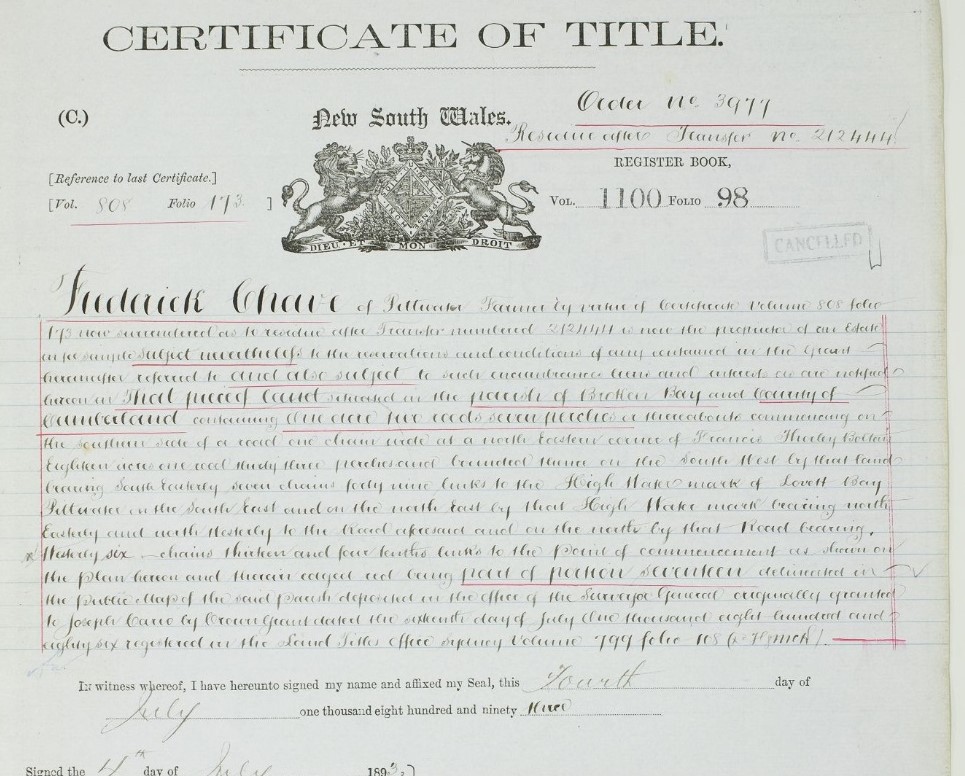 CERTIFICATE OF TITLE.
(C.)
New South Wales.
Order No. 3977
Residue after Transfer No. 212444
REGISTER BOOK,
[Reference to last Certificate.]
[Vol. 808 Folio 173 ]
VOL. 1100 FOLIO 98
DIEU·ET MON DROIT
CANCELLED
Frederick Chave of Pittwater Farmer by virtue of Certificate Volume 808 folio
173 now surrendered as to residue after Transfer numbered 212444 is now the proprietor of an Estate
in fee simple subject nevertheless to the reservations and conditions if any contained in the Grant
hereinafter referred to and also subject to such encumbrances liens and interests as are notified
hereon in That piece of land situated in the parish of Broken Bay and County of
Cumberland containing One acre two roods seven perches or thereabouts commencing on
the southern side of a road one chain wide at a north Eastern corner of Francis
Eighteen acres one rood thirty three perches and bounded thence on the South West by that land
bearing South Easterly seven chains forty nine links to the High Water mark of Lovett Bay
Pittwater on the South East and on the north East by that High Water mark bearing north
Easterly and north Westerly to the Road aforesaid and on the north by that Road bearing
Westerly six chains thirteen and four tenths links to the Point of commencement as shown on
the plan hereon and therein edged red being part of portion seventeen delineated in
the Public Map of the said Parish deposited in the Office of the Surveyor General originally granted
to Joseph Cario by Crown Grant dated the sixteenth day of July One thousand eight hundred and
eighty six registered in the Land Titles Office Sydney Volume 799 folio 108
In witness whereof, I have hereunto signed my name and affixed my Seal, this Fourth day of
July one thousand eight hundred and ninety three
Signed the 4th day of July 1893.